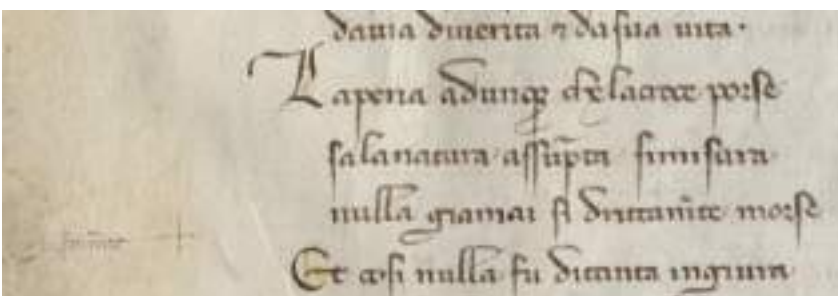 da uia diuerita ⁊ da sua uita·
La pena adunqꝫ che la croce porse
sa la natura assūpta si misura·
nulla gia mai si drittam̄te morse
Et cosi nulla fu di tanta ingiura